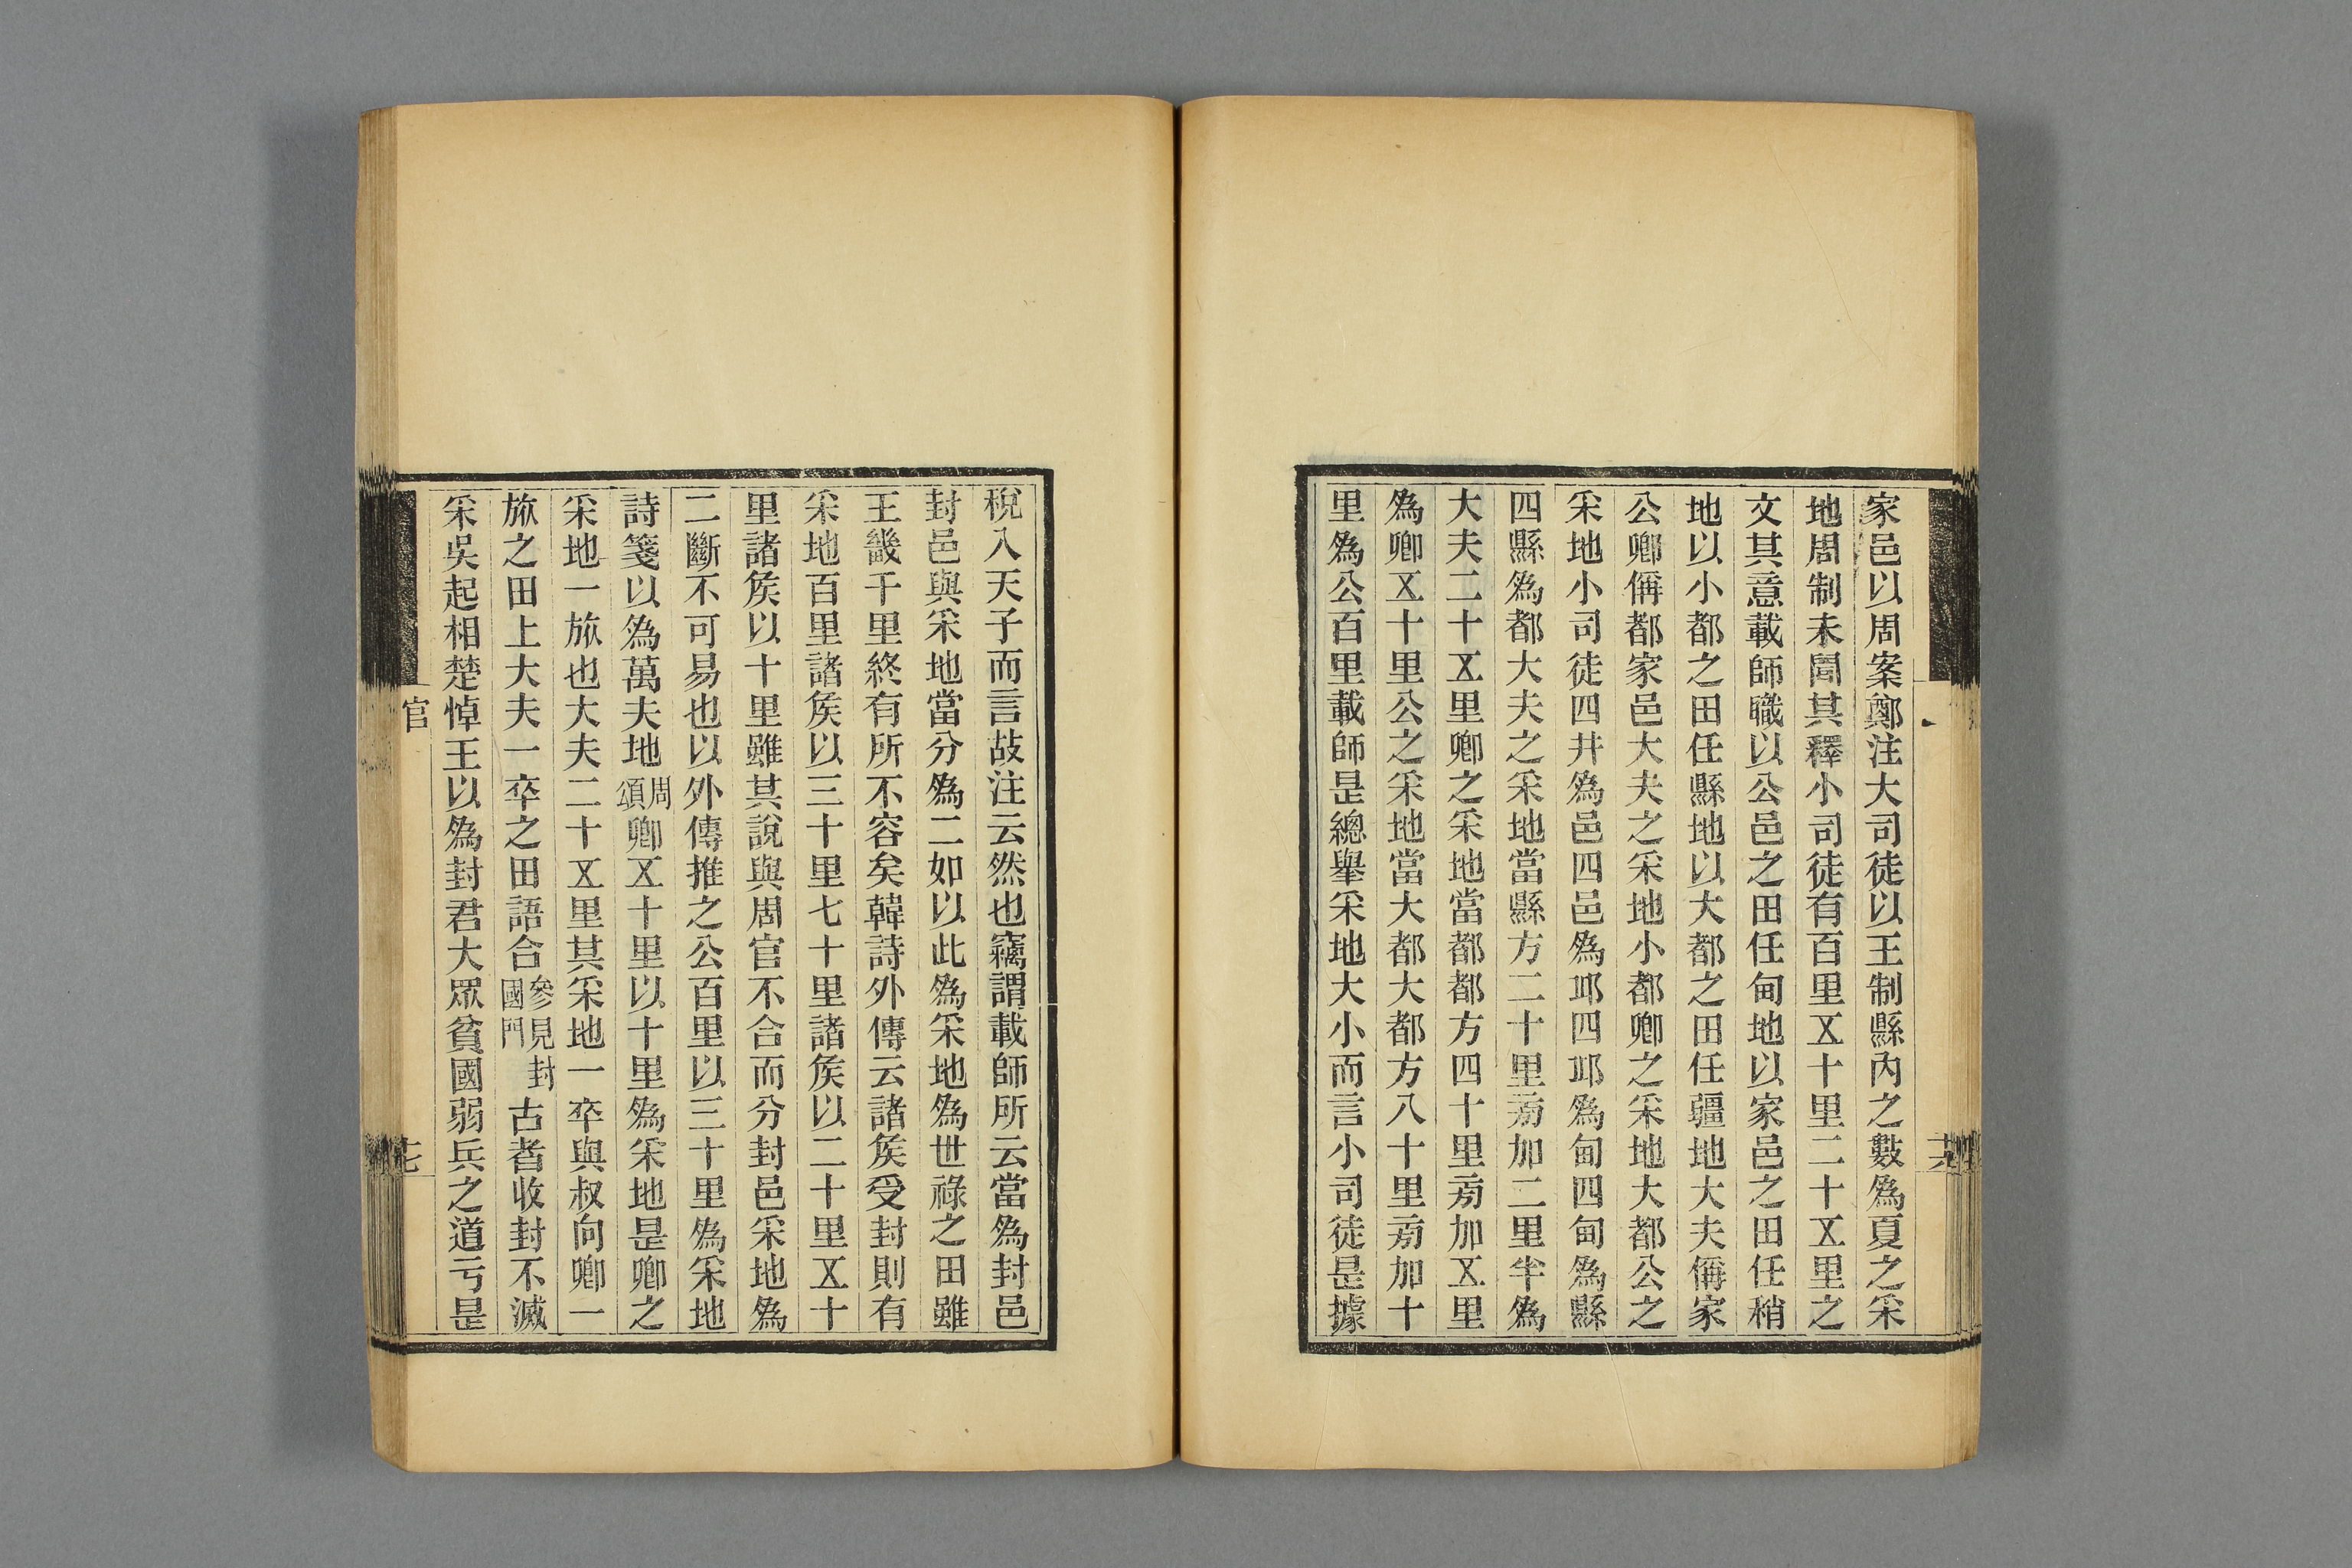 家邑以周案鄭注大司徒以王制縣內之數為夏之采
地周制未聞其釋小司徒有百里㐅十里二十㐅里之
文其意載師職以公邑之田任甸地以家邑之田任稍
地以小都之田任縣地以大都之田任疆地大夫偁家
公卿偁都家邑大夫之采地小都卿之采地大都公之
采地小司徒四井為邑四邑為邱四邱為甸四甸為縣
四縣為都大夫之采地當縣方二十里㫄加二里半為
大夫二十㐅里卿之采地當都都方四十里㫄加㐅里
為卿㐅十里公之采地當大都大都方八十里㫄加十
里為公百里載師是總舉采地大小而言小司徒是據
十六
稅入天子而言故注云然也竊謂載師所云當為封邑
封邑與采地當分為二如以此為采地為世祿之田雖
王畿千里終有所不容矣韓詩外傳云諸矦受封則有
采地百里諸矦以三十里七十里諸矦以二十里㐅十
里諸矦以十里雖其說與周官不合而分封邑采地為
二斷不可易也以外傳推之公百里以三十里為采地
詩箋以為萬夫地周頌卿㐅十里以十里為采地是卿之
采地一旅也大夫二十㐅里其采地一卒與叔向卿一
旅之田上大夫一卒之田語合參見封國門古者收封不滅
采吳起相楚悼王以為封君大眾貧國弱兵之道亏是
官
十七